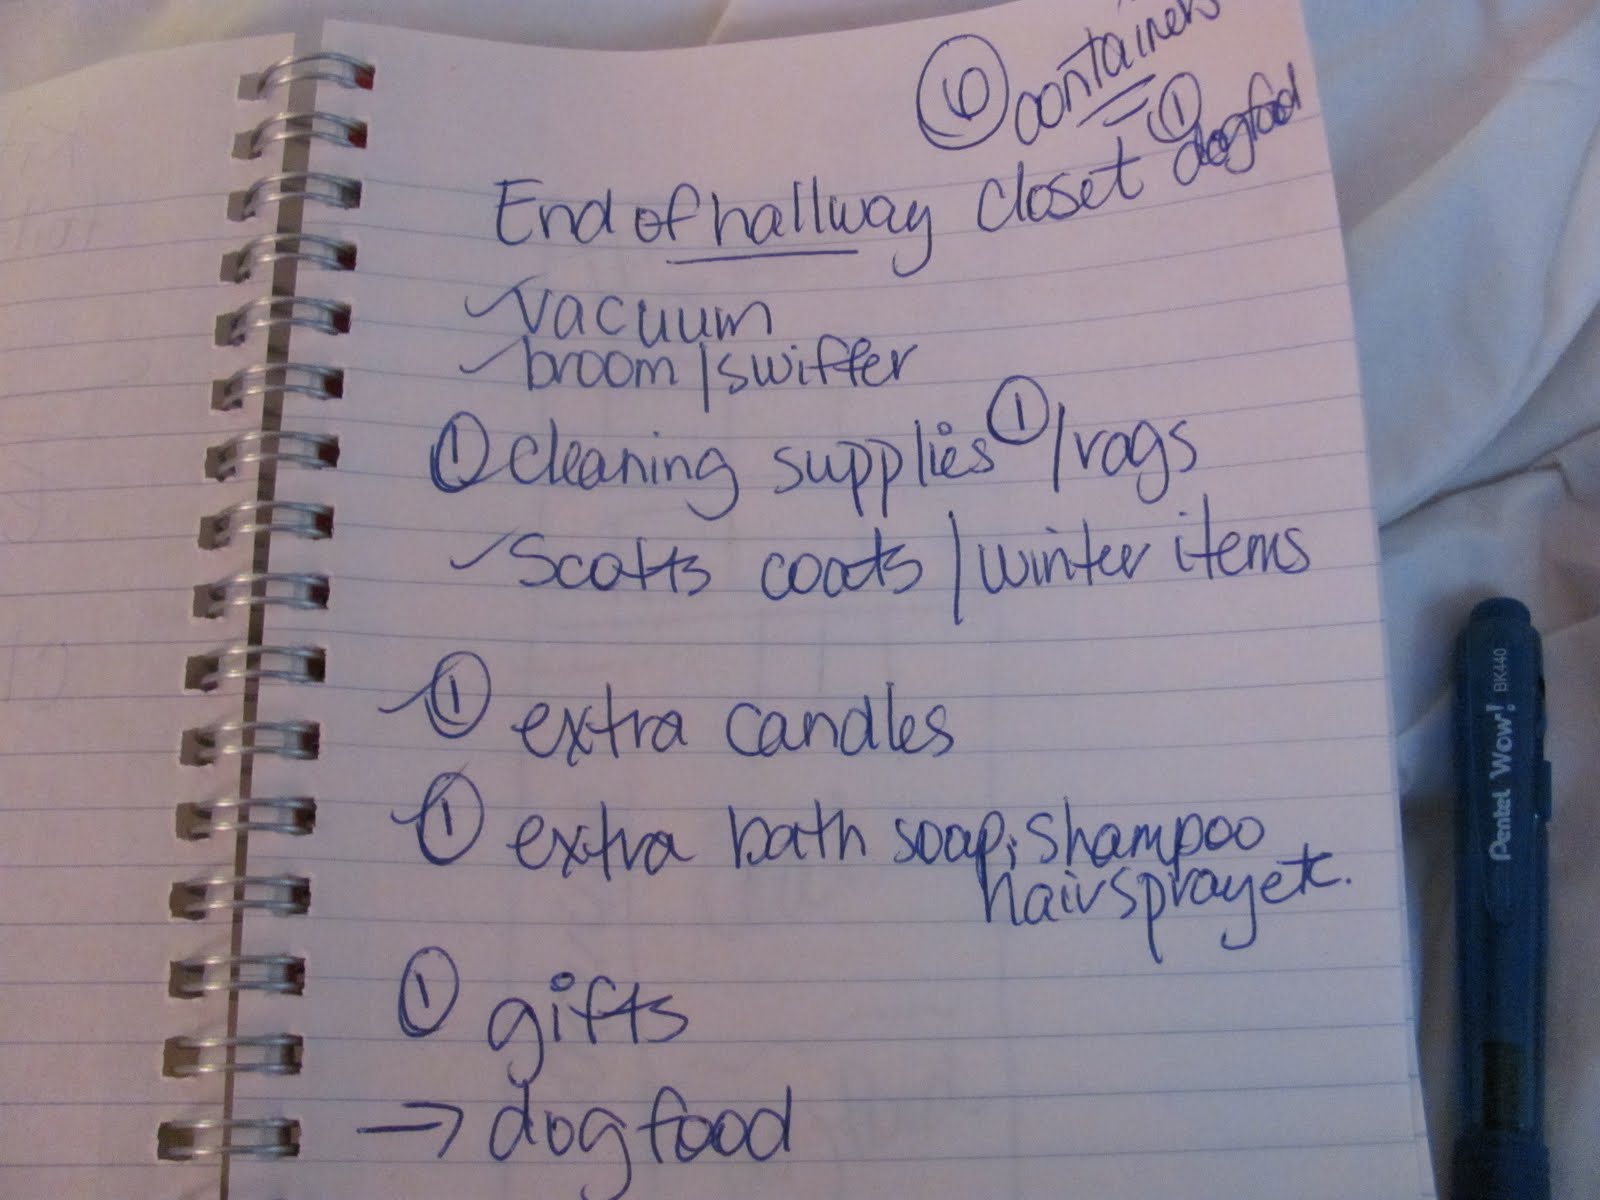 ⑥ containers
① dogfood
End of hallway closet
vacuum
broom/swiffer
① cleaning supplies ① /rags
Scotts coats / winter items
① extra candles
① extra bath soap, shampoo
hairspray etc.
① gifts
→ dog food
Pentel Wow! BK440